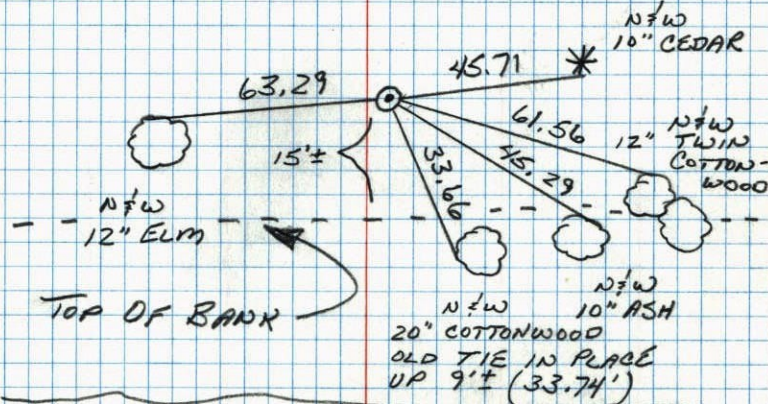 N&W
10" CEDAR
63.29
45.71
61.56
N&W
12" TWIN
COTTON-
WOOD
15'±
33.66
45.29
N&W
12" ELM
TOP OF BANK
N&W
10" ASH
N&W
20" COTTONWOOD
OLD TIE IN PLACE
UP 9'± (33.74')